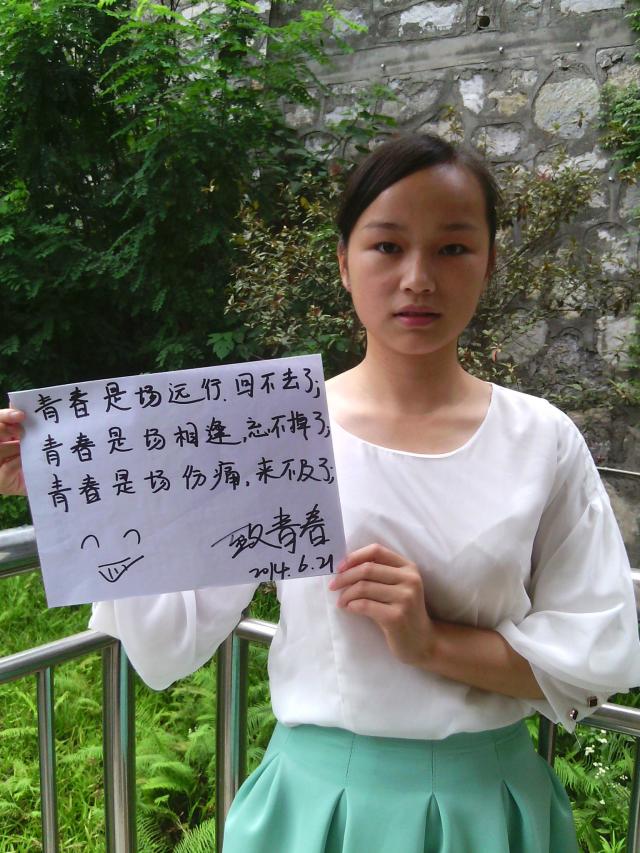 青春是场远行.回不去了;
青春是场相逢,忘不掉了;
青春是场伤痛,来不及了;
致青春
2014.6.21